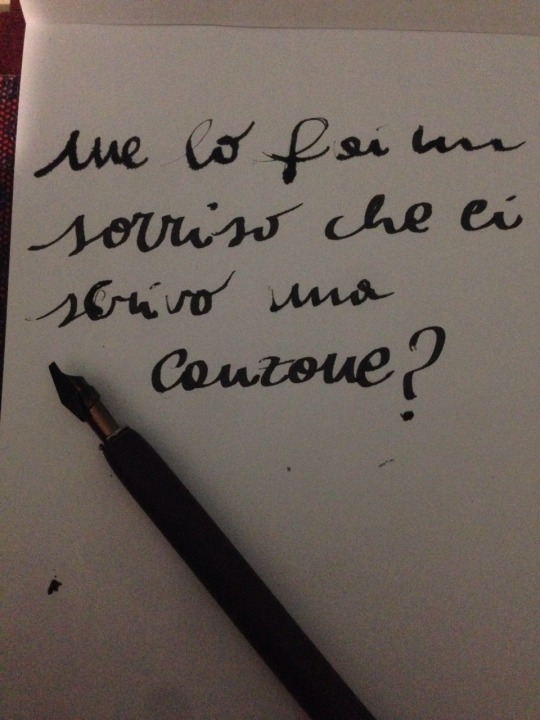 me lo fai un
sorriso che ci
scrivo una
canzone?